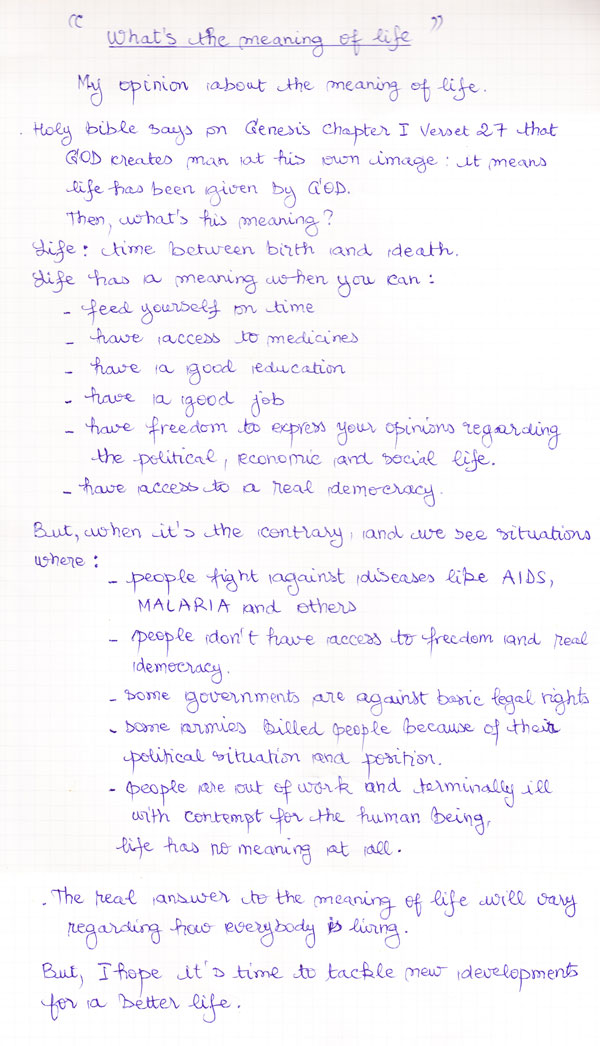 "What's the meaning of life"
My opinion about the meaning of life.
. Holy Bible says on Genesis Chapter I Verset 27 that
GOD creates man at his own image : it means
life has been given by GOD.
Then, what's his meaning ?
Life : time between birth and death.
Life has a meaning when you can :
- feed yourself on time
- have access to medicines
- have a good education
- have a good job
- have freedom to express your opinions regarding
the political, economic and social life.
- have access to a real democracy.
But, when it's the contrary, and we see situations
where :
- people fight against diseases like AIDS,
MALARIA and others
- people don't have access to freedom and real
democracy.
- some governments are against basic legal rights
- some armies billed people because of their
political situation and position.
- people are out of work and terminally ill
with contempt for the human being,
life has no meaning at all.
. The real answer to the meaning of life will vary
regarding how everybody is living.
But, I hope it's time to tackle new developments
for a better life.